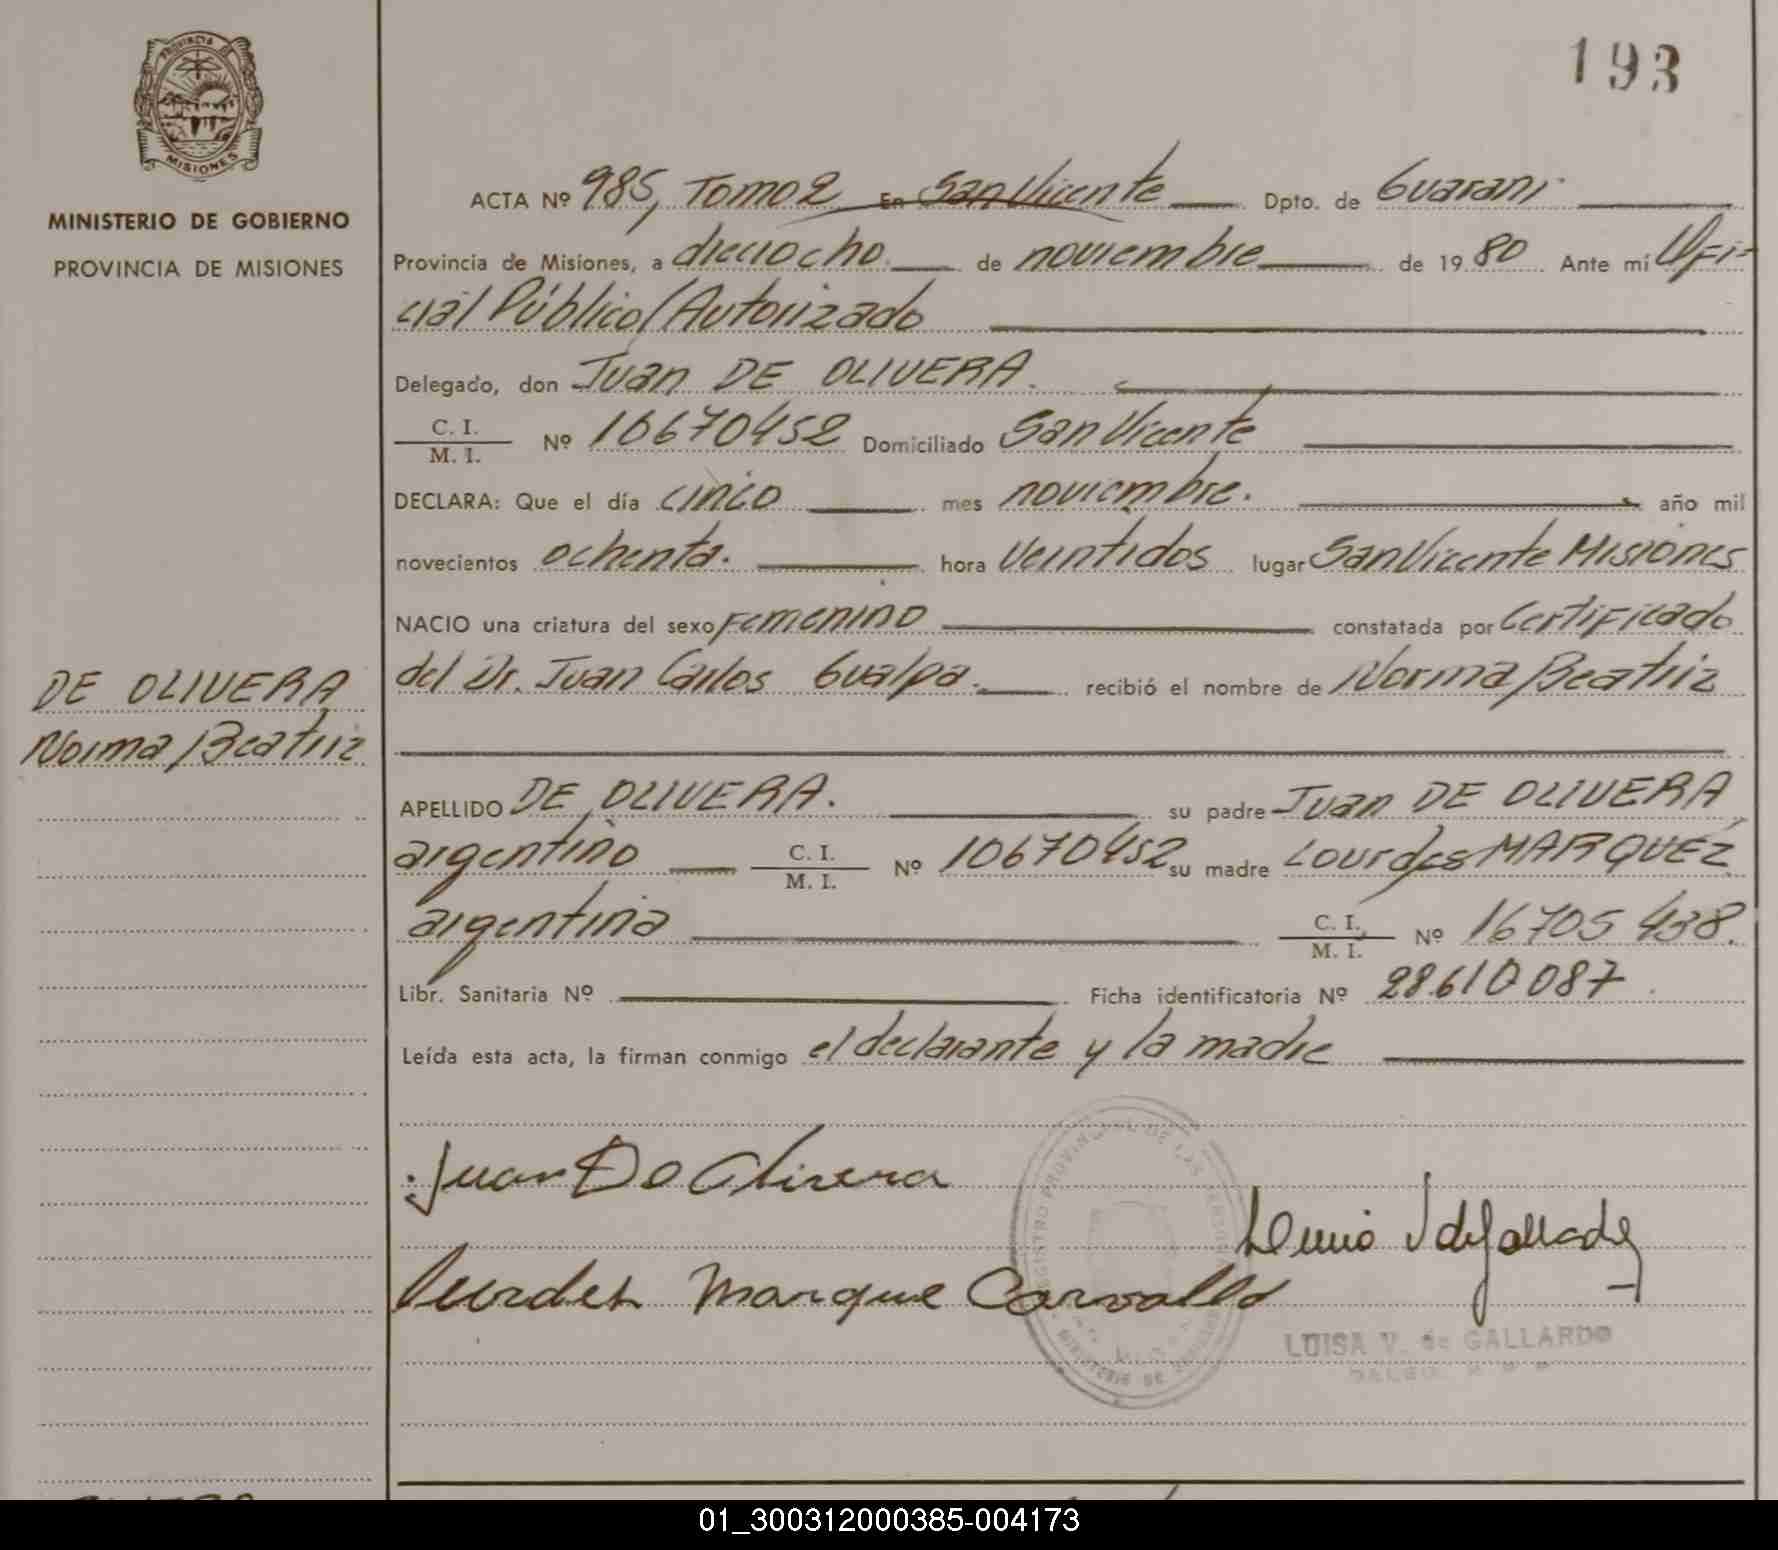 193
PROVINCIA DE
MISIONES
MINISTERIO DE GOBIERNO
PROVINCIA DE MISIONES
ACTA Nº 985, Tomo 2 En San Vicente Dpto. de Guarani
Provincia de Misiones, a dieciocho de noviembre de 1980 Ante mí Ofi-
cial Público/Autorizado
Delegado, don Juan DE OLIVERA.
C. I.
M. I.
Nº 10670452 Domiciliado San Vicente
DECLARA: Que el día cinco mes noviembre. año mil
novecientos ochenta. hora Veintidos lugar San Vicente Misiones
NACIO una criatura del sexo Femenino constatada por Certificado
DE OLIVERA
del Dr. Juan Carlos Gualpa. recibió el nombre de Norma Beatriz
Norma Beatriz
APELLIDO DE OLIVERA. su padre Juan DE OLIVERA
argentino C. I. M. I. Nº 10670452 su madre Lourdes MARQUEZ
argentina C. I. M. I. Nº 16705438.
Libr. Sanitaria Nº Ficha identificatoria Nº 28.610087
Leída esta acta, la firman conmigo el declarante y la madre
Juan De Olivera
Lourdes Marque Carvallo
LUISA V. de GALLARDO
01_300312000385-004173